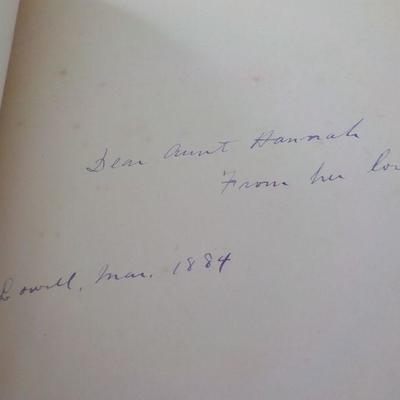 Dear Aunt Hannah
From her lov
Lowell, Mar. 1884